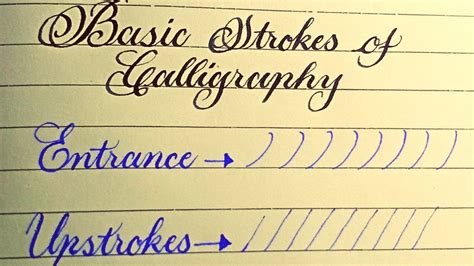 Basic Strokes of
Calligraphy
Entrance →
Upstrokes →